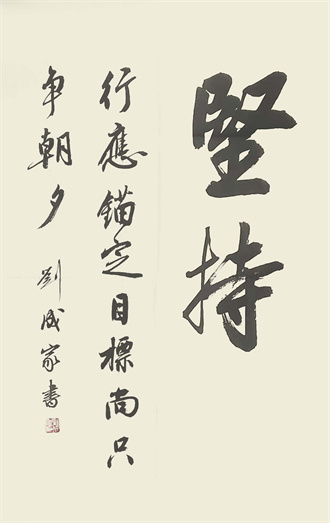 堅持
行應錨定目標尚只
争朝夕
劉成家書